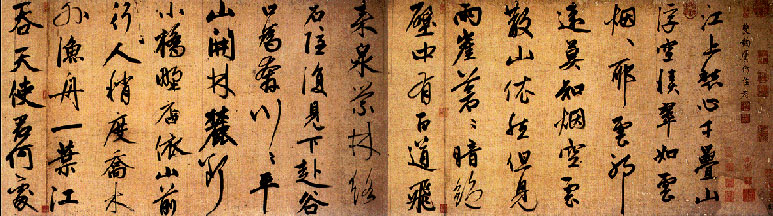 江上愁心千疊山
浮空積翠如雲
烟、耶雲耶
遠莫知烟空雲
散山依然但見
兩崖蒼〻暗絕
壁中有百道飛
來泉縈林絡
石隱復見下赴谷
口為奔川〻平
山開林麓斷
小橋野店依山前
行人稍度喬木
外漁舟一葉江
吞天使君何處